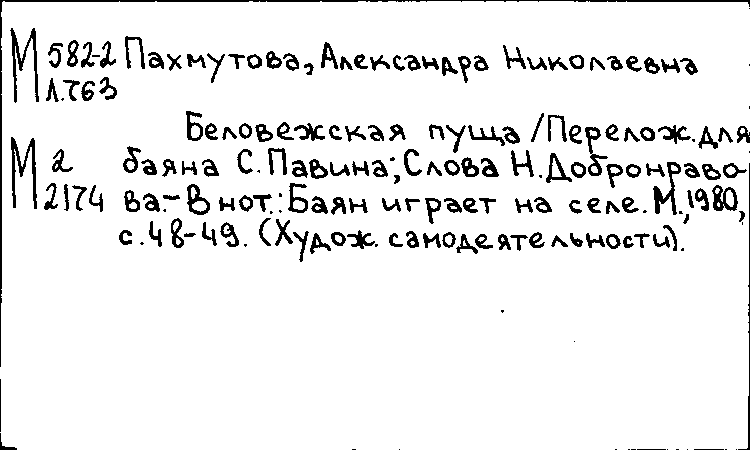 М 582-2 Пахмутова, Александра Николаевна
Л.763
Беловежская пуща /Перелож. для
М 2 баяна С. Павина; Слова Н. Добронраво-
2174 ва.- В нот.: Баян играет на селе. М., 1980,
с. 48-49. (Худож. самодеятельности).